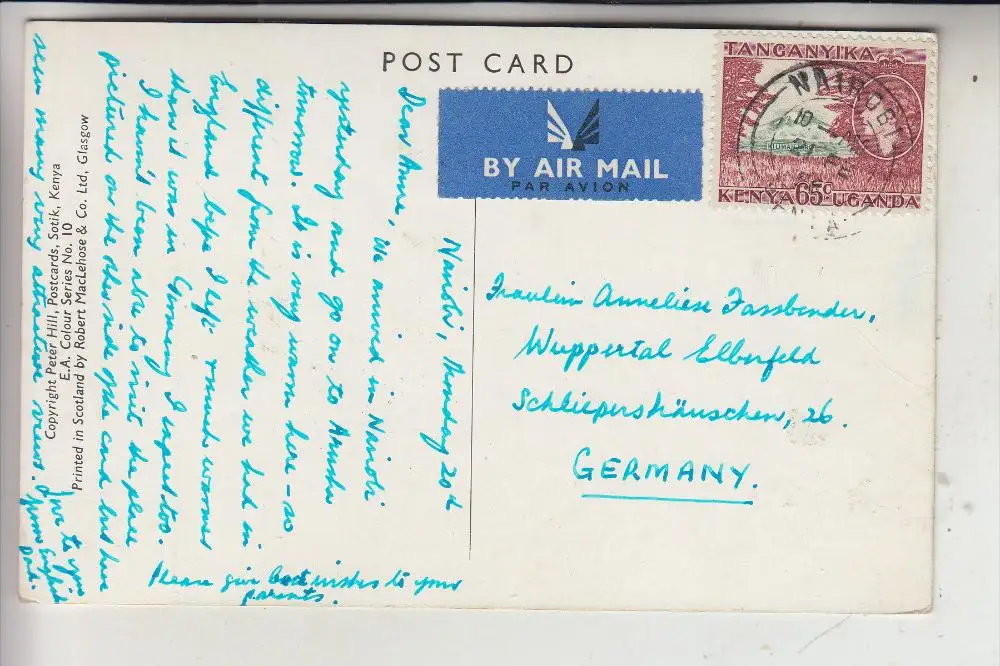 POST CARD
BY AIR MAIL
PAR AVION
TANGANYIKA
NAIROBI
KILIMANJARO
KENYA 65c UGANDA
Nairobi, Monday 20th
Dear Anne,
We arrived in Nairobi
yesterday and go on to Arusha
tomorrow. It is very warm here – so
different from the weather we had in
England before I left & much warmer
than it was in Germany I expect too.
I haven't been able to visit the place
pictured on the other side of the card but have
seen many very attractive views.
Love to you
from English
Please give best wishes to your
parents.
Fraulein Anneliese Fassbender,
Wuppertal Elberfeld
Schliepershäuschen, 26.
GERMANY.
Copyright Peter Hill, Postcards, Sotik, Kenya
E.A. Colour Series No. 10
Printed in Scotland by Robert MacLehose & Co. Ltd, Glasgow